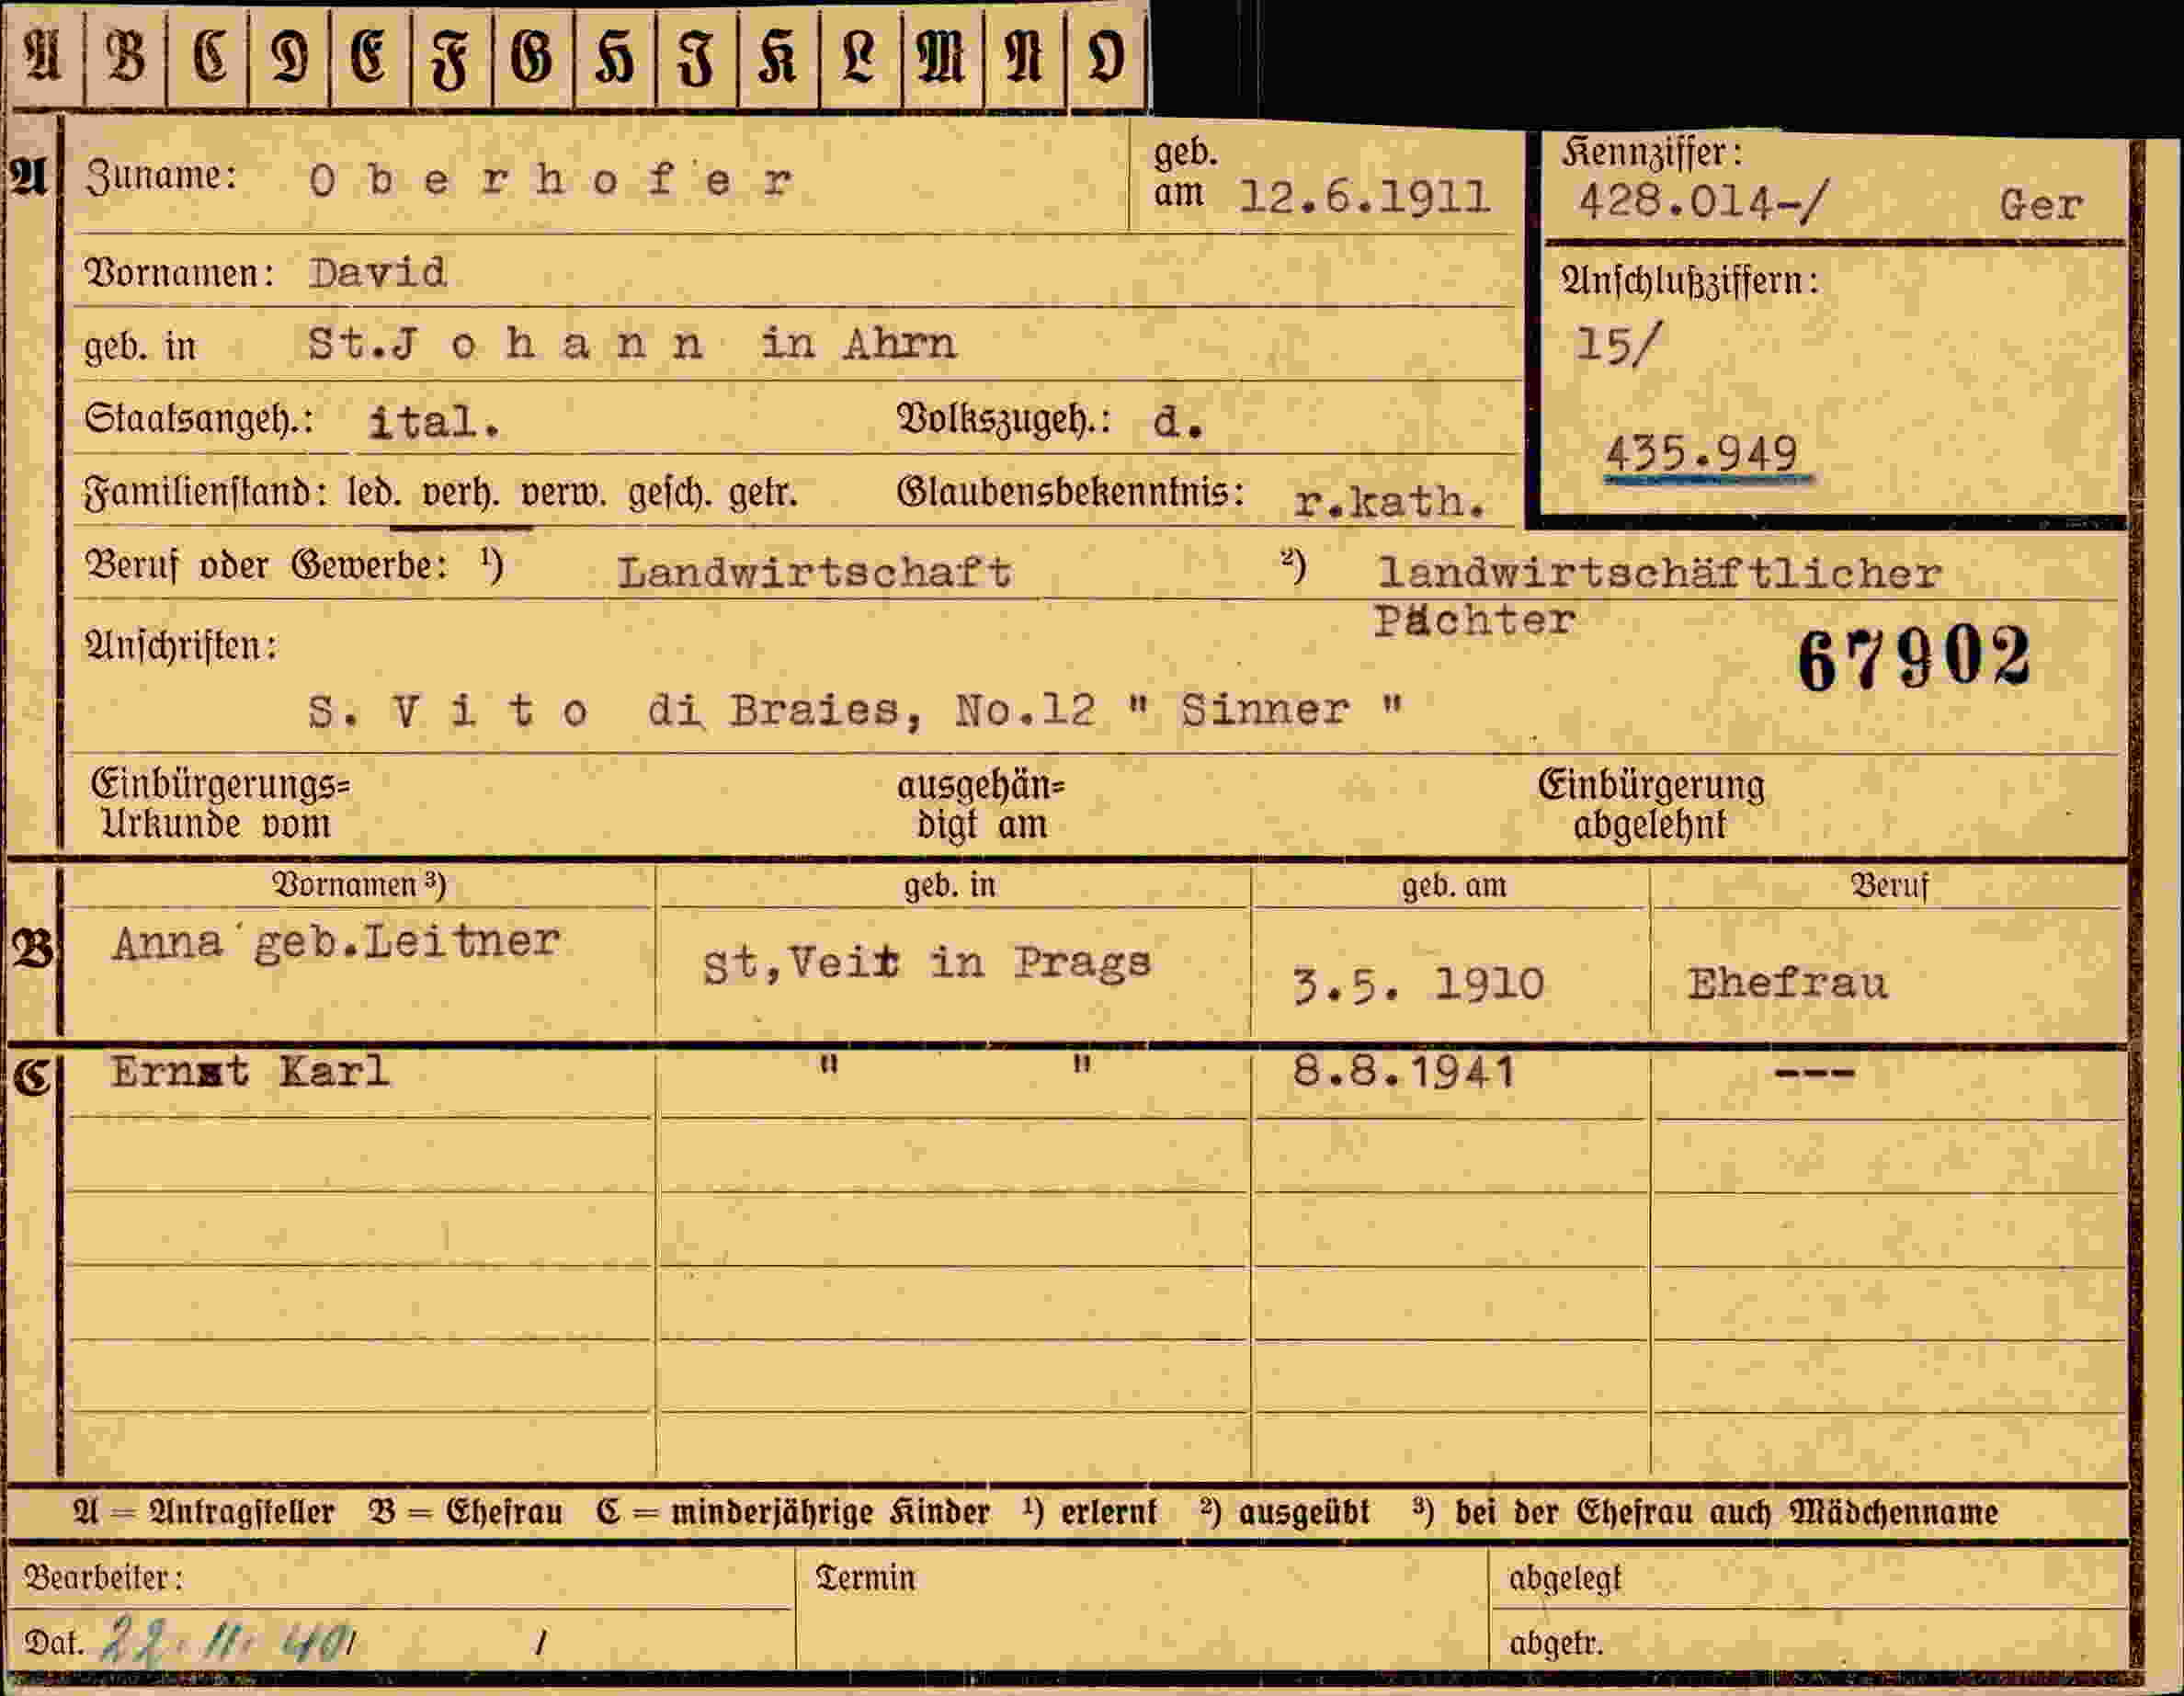 A B C D E F G H I K L M N O
A Zuname: Oberhofer geb. am 12.6.1911
Kennziffer: 428.014-/ Ger
Vornamen: David
Anschlußziffern:
geb. in St.Johann in Ahrn
15/
Staatsangeh.: ital. Volkszugeh.: d.
435.949
Familienstand: led. verh. verw. gesch. getr. Glaubensbekenntnis: r.kath.
Beruf oder Gewerbe: ¹) Landwirtschaft ²) landwirtschäftlicher
Pächter
Anschriften:
67902
S. Vito di Braies, No.12 " Sinner "
Einbürgerungs= ausgehän= Einbürgerung
Urkunde vom digt am abgelehnt
Vornamen ³) geb. in geb. am Beruf
B Anna geb.Leitner St,Veit in Prags 3.5. 1910 Ehefrau
C Ernst Karl " " 8.8.1941 ---
A = Antragsteller B = Ehefrau C = minderjährige Kinder ¹) erlernt ²) ausgeübt ³) bei der Ehefrau auch Mädchenname
Bearbeiter: Termin abgelegt
Dat. 22. 11. 40/ / abgetr.